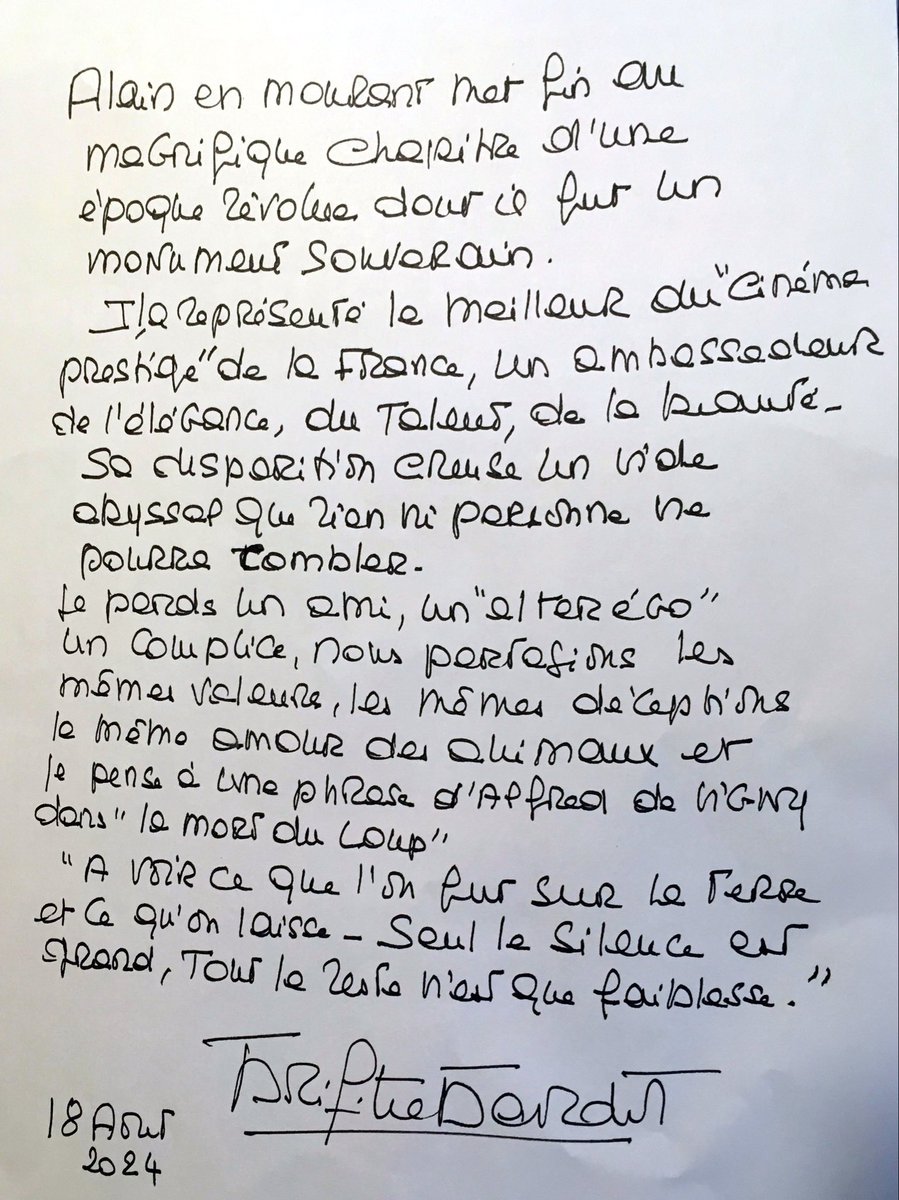 Alain en mourant met fin au
magnifique chapitre d'une
époque révolue dont il fut un
monument souverain.
Il a représenté le meilleur du "cinéma
prestige" de la France, un ambassadeur
de l'élégance, du talent, de la beauté -
Sa disparition creuse un vide
abyssal que rien ni personne ne
pourra combler.
Je perds un ami, un "alter égo"
un complice, nous partagions les
mêmes valeurs, les mêmes déceptions
le même amour des animaux et
Je pense à une phrase d'Alfred de VIGNY
dans "la mort du loup"
"A voir ce que l'on fut sur la Terre
et ce qu'on laisse - Seul le silence est
grand, Tout le reste n'est que faiblesse."
Brigitte Bardot
18 Aout
2024